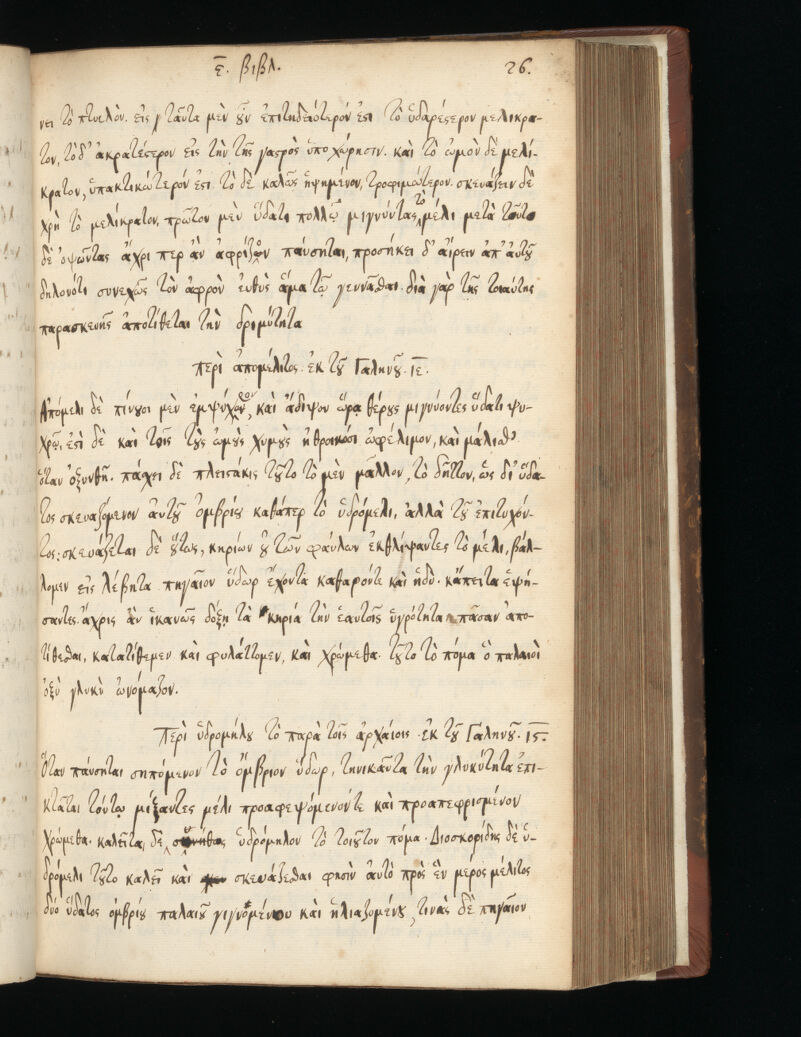 ε. βιβλ. 26.
νει τὸ πτυελὸν. εἰς γ ταῦτα μὲν οὖν ἐπιτηδειότερόν ἐστι τὸ ὑδαρέστερον μελικρα-
τον, τὸ δ' ἀκρατέστερον εἰς τὴν τῆς γαστρὸς ὑποχώρησιν. καὶ τὸ ὠμὸν δὲ μελί-
κρατον, ὑπακτικώτερόν ἐστι. τὸ δὲ καλῶς ἡψημένον, τροφιμώτερον. σκευάζειν δὲ
χρὴ τὸ μελίκρατον, πρῶτον μὲν ὕδατι πολλῷ μιγνύντας τὸ μέλι μετὰ τοῦτο
δὲ ὀψῶντας ἄχρι περ ἂν ἀφρίζον παύσηται, προσήκει δ' αἴρειν ἀπ' αὐτοῦ
δηλονότι συνεχῶς τὸν ἀφρὸν εὐθὺς ἅμα τῷ γεννᾶσθαι. διὰ γὰρ τῆς τοιαύτης
παρασκευῆς ἀποτίθεται τὴν δριμύτητα
Περὶ ἀπομέλιτος. ἐκ τοῦ Γαληνοῦ. ιε.
Ἀπόμελι δὲ πίνουσι μὲν ἐμψύχον, καὶ ἄδιψον ὥρᾳ θέρους μιγνύοντες ὕδατι ψυ-
χρῷ. ἐστὶ δὲ καὶ τοῖς τοὺς ὠμοὺς χυμοὺς ἠθροικόσι ὠφέλιμον, καὶ μάλισθ'
ὅταν ὀξυνθῇ. πάσχει δὲ πλειστάκις τοῦτο τὸ μὲν μᾶλλον, τὸ δ' ἧττον, ὡς δι' ὕδα-
τος σκευαζόμενον αὐτοῦ ὀμβρίου καθάπερ τὸ ὑδρόμελι, ἀλλὰ τοῦ ἐπιτυχόν-
τος: σκευάζεται δὲ οὕτως, κηρίων οὐ τῶν φαύλων ἐκθλίψαντες τὸ μέλι, βάλ-
λομεν εἰς λέβητα πηγαῖον ὕδωρ ἔχοντα καθαρόντε καὶ ἡδύ. κἄπειτα ἑψή-
σαντες. ἄχρις ἂν ἱκανῶς δόξῃ τὰ κηρία τὴν ἑαυτοῖς ὑγρότητα πᾶσαν ἀπο-
τίθεσθαι, κατατίθεμεν καὶ φυλάττομεν, καὶ χρώμεθα. τοῦτο τὸ πόμα ὃ παλαιοὶ
ὀξὺ γλυκὺ ὠνόμαζον.
Περὶ ὑδρομήλου τὸ παρὰ τοῖς ἀρχαίοις. ἐκ τοῦ Γαληνοῦ. ις.
Ὅταν παύσηται σηπόμενον τὸ ὄμβριον ὕδωρ, τηνικαῦτα τὴν γλυκύτητα ἐπι-
κτᾶται τούτῳ μίξαντες μέλι προαφεψόμενόντε καὶ προαπεφρισμένον
χρώμεθα. καλεῖται δὲ ὑδρόμηλον τὸ τοιοῦτον πόμα. Διοσκορίδης δὲ ὑ-
δρόμελι τοῦτο καλεῖ καὶ σκευάζεσθαι φησὶν αὐτὸ πρὸς ἓν μέρος μέλιτος
δύο ὕδατος ὀμβρίου παλαιοῦ γιγνομένου καὶ ἡλιαζομένου, τινὰς δὲ πηγαῖον